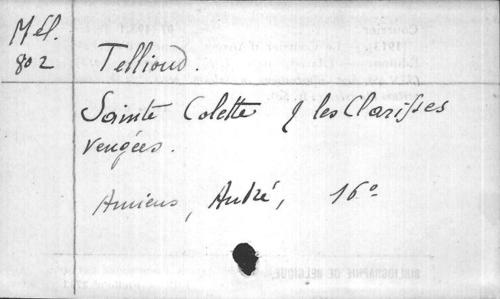 Mél.
802
Tellioud.
Sainte Colette & les Clarisses
vengées.
Amiens, André, 16°
BIBLIOGRAPHIE DE BELGIQUE.